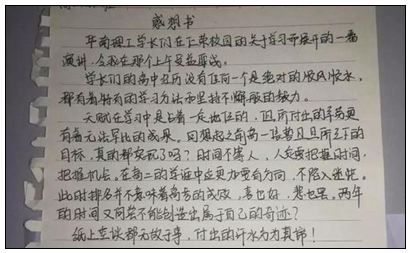 感想书
华南理工学长们在正荣校园的关于学习所展开的一番
演讲,令我在那个上午受益匪浅。
学长们的高中经历没有任何一个是绝对的顺风顺水,
都有着特有的学习方法和坚持不懈般的努力。
天赋在学习中是占着一定地位的,但所付出的辛劳更
有着无法写比的成果。回想起之前高一踌躇且且所定下的
目标,真的都实现了吗?时间不等人,人总要把握时间,
把握机会。在高二的学途中应更加要有方向,不陷入迷茫。
此时排名并不意味着高考的成败,喜也好,悲也罢。两年
的时间又何尝不能创造出属于自己的奇迹?
纸上空谈都无放于事,付出的汗水方为真谛!